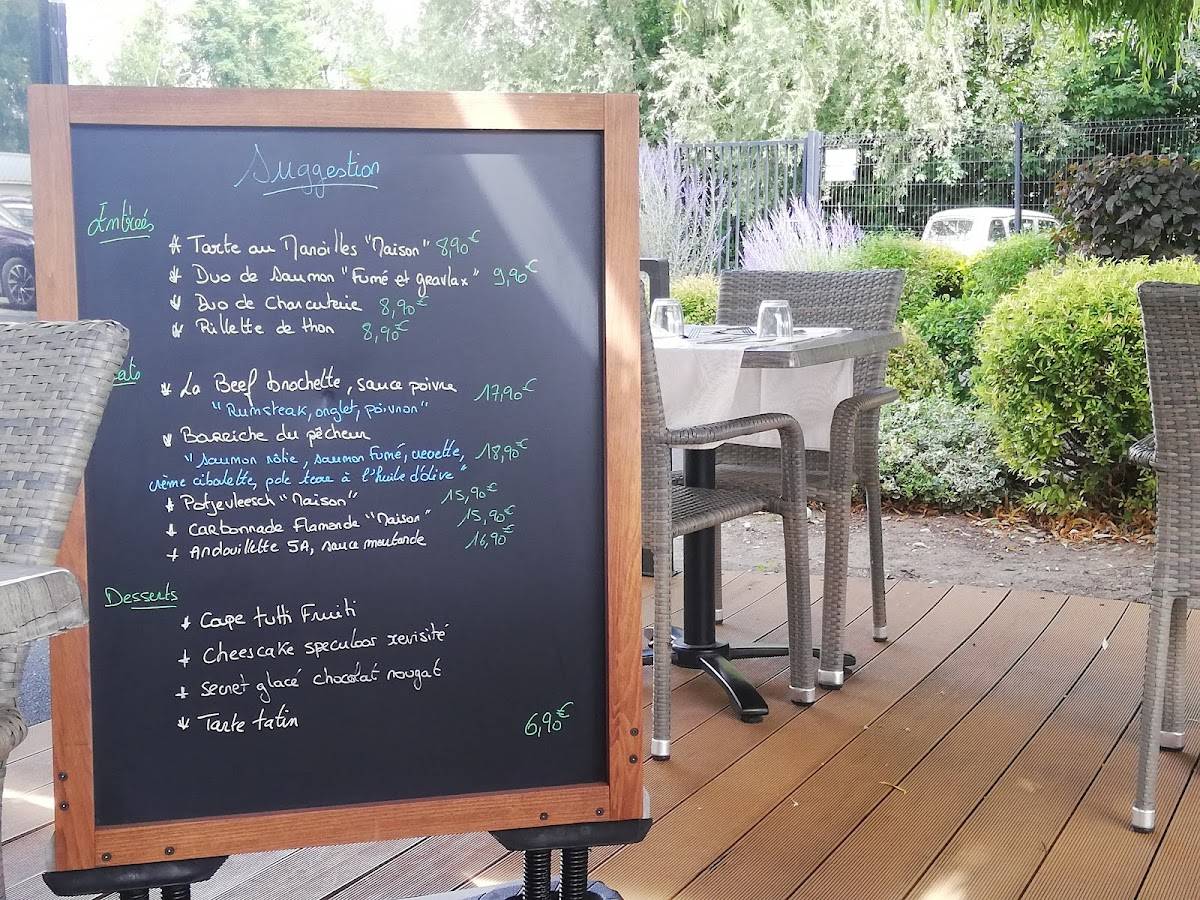 Suggestion
Entrées
* Tarte au Maroilles "Maison" 8,90€
* Duo de saumon "Fumé et gravlax" 9,90€
* Duo de Charcuterie 8,90€
* Rillette de thon 8,90€
ats
* La Beef brochette, sauce poivre 17,90€
"Rumsteak, onglet, poivron"
* Barriche du pêcheur
"saumon rôtie, saumon Fumé, crevette, 18,90€
crème ciboulette, pde terre à l'huile d'olive"
* Potjevleesch "Maison" 15,90€
* Carbonnade flamande "Maison" 15,90€
* Andouillette 5A, sauce moutarde 16,90€
Desserts
* Cape tutti Fruiti
* Cheescake speculoos revisité
* Secret glacé chocolat nougat
* Tarte tatin
6,90€